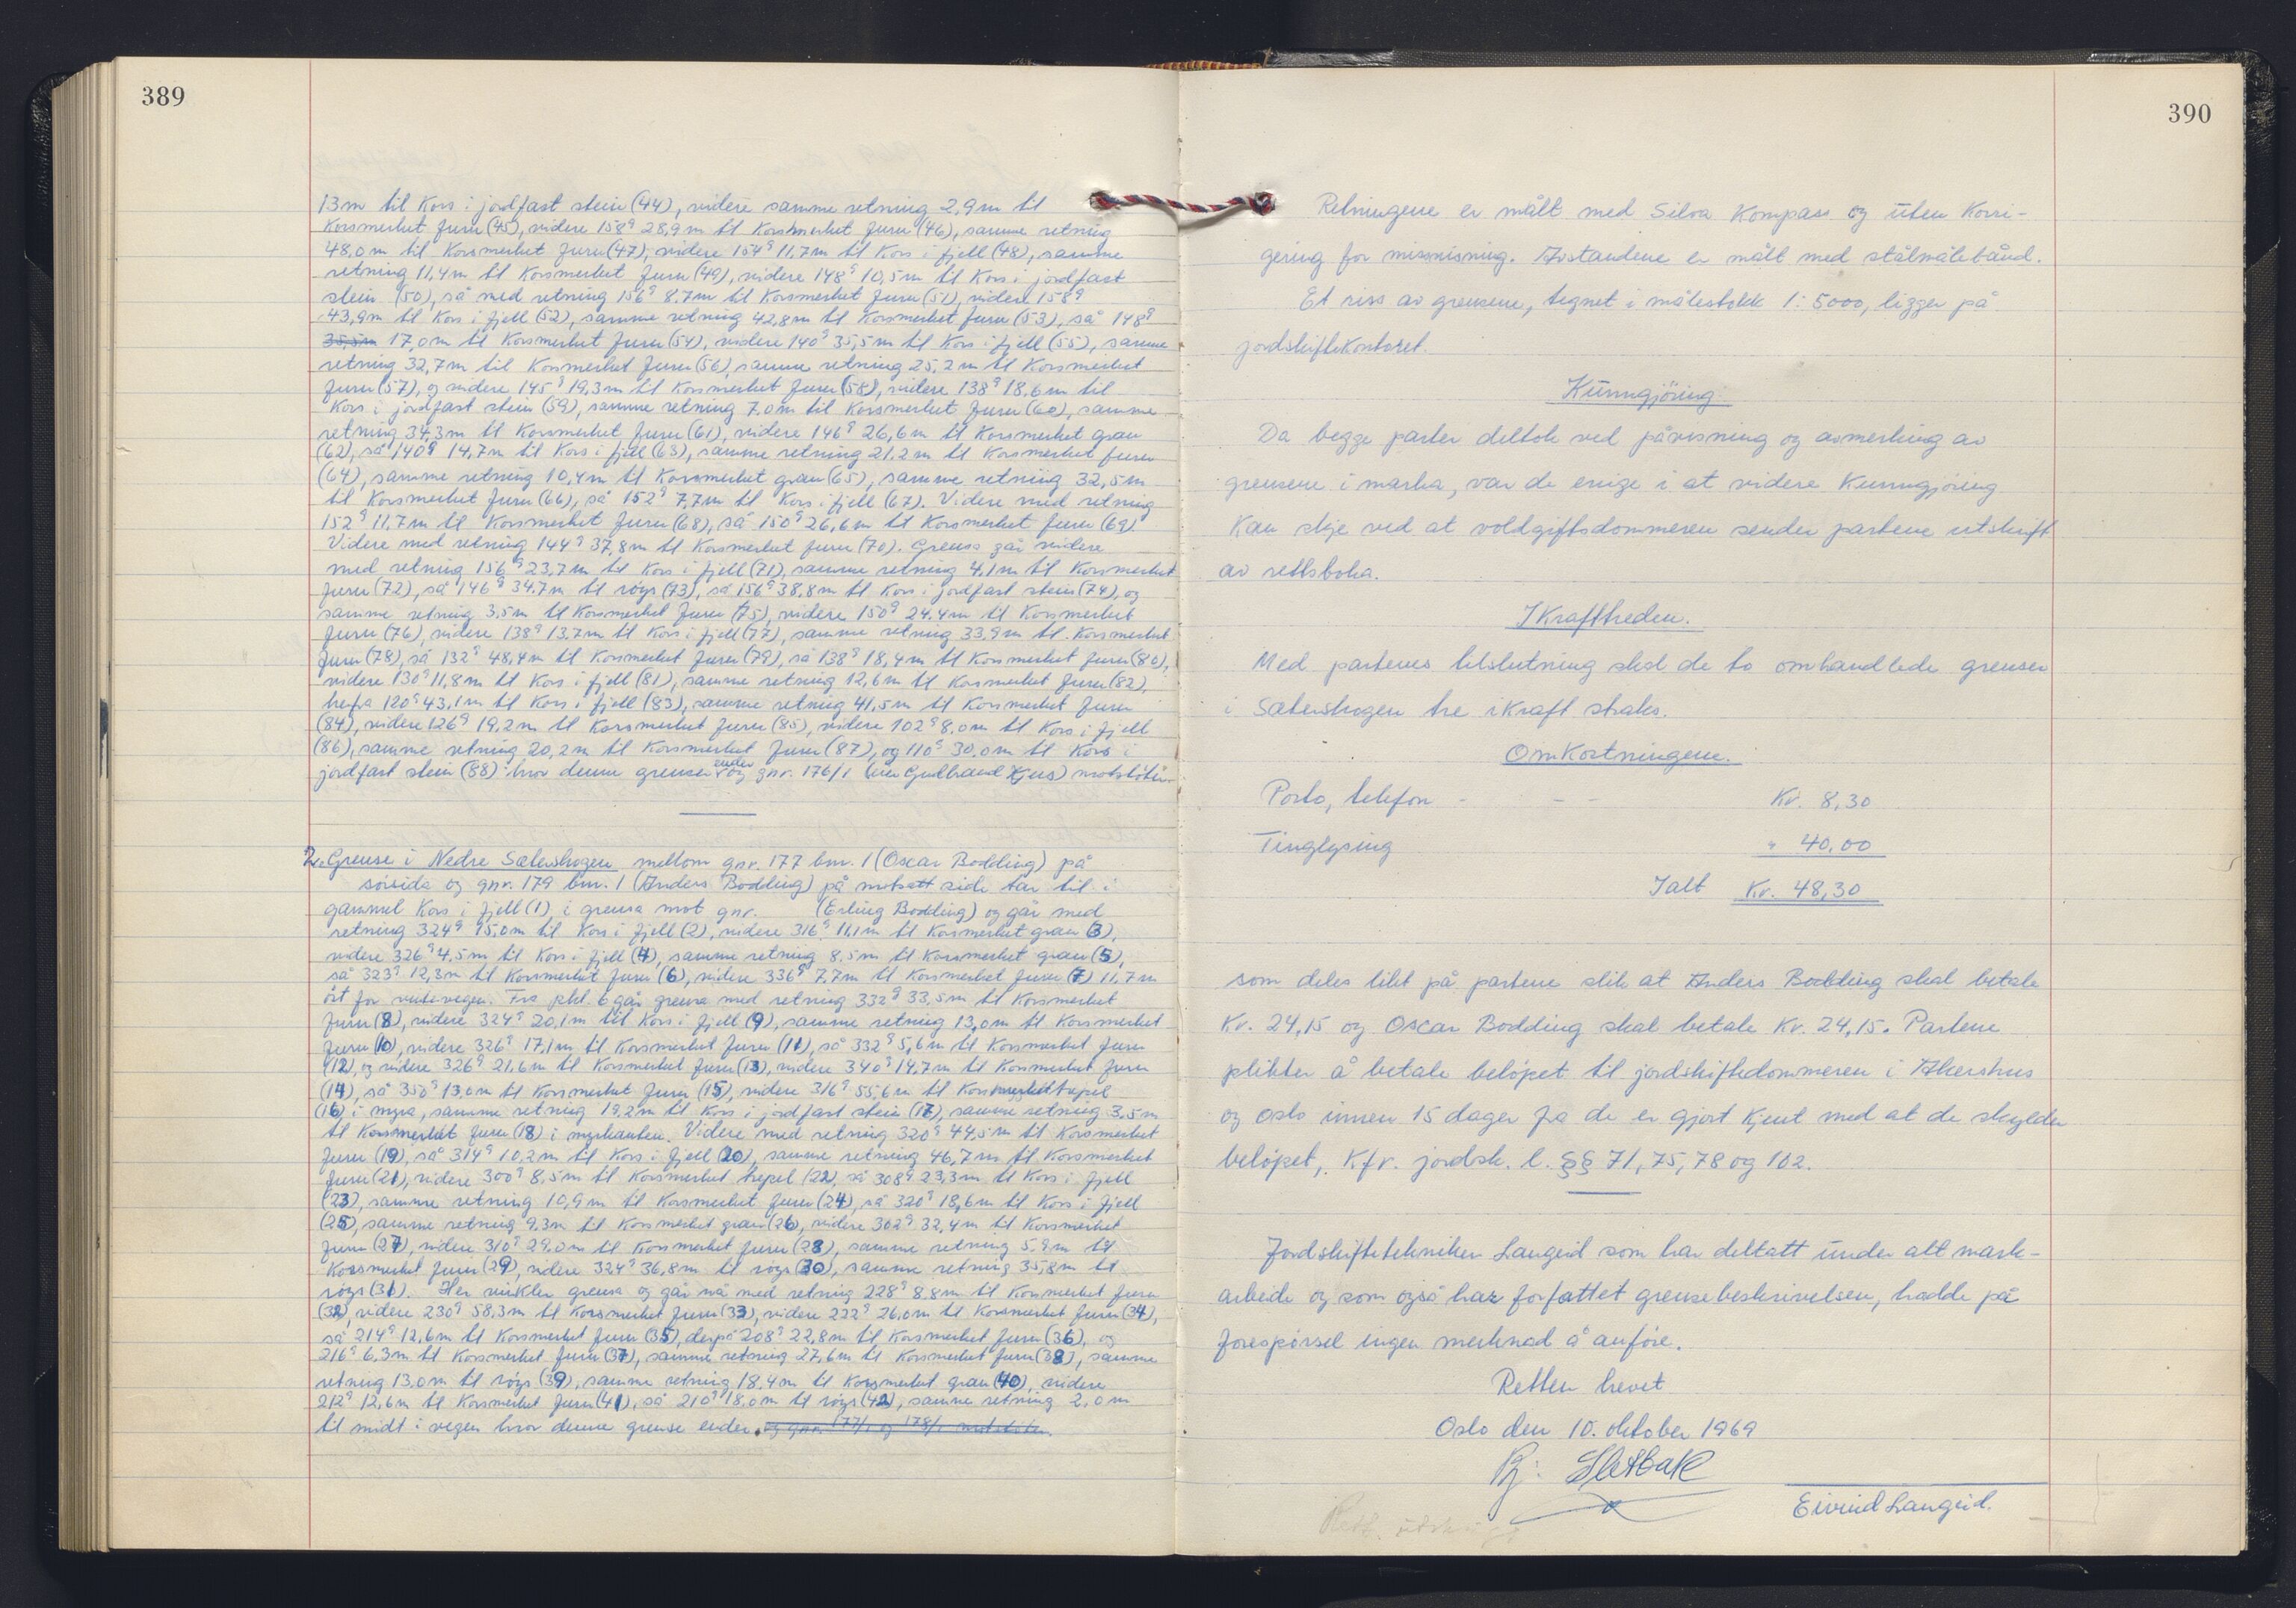 389
13m til Kors i jordfast stein (44), videre samme retning 2,9m til
Korsmerket furu (45), videre 158g 28,9m til Korsmerket furu (46), samme retning
48,0m til Korsmerket furu (47), videre 154g 11,7m til Kors i fjell (48), samme
retning 11,4m til Korsmerket furu (49), videre 148g 10,5m til Kors i jordfast
stein (50), så med retning 156g 8,7m til Korsmerket furu (51), videre 158g
43,9m til Kors i fjell (52), samme retning 42,8m til Korsmerket furu (53), så 148g
35,5m 17,0m til Korsmerket furu (54), videre 140g 35,5m til Kors i fjell (55), samme
retning 32,7m til Korsmerket furu (56), samme retning 25,2m til Korsmerket
furu (57), og videre 145g 19,3m til Korsmerket furu (58), videre 138g 18,6m til
Kors i jordfast stein (59), samme retning 7,0m til Korsmerket furu (60), samme
retning 34,3m til Korsmerket furu (61), videre 146g 26,6m til Korsmerket gran
(62), så 140g 14,7m til Kors i fjell (63), samme retning 21,2m til Korsmerket furu
(64), samme retning 10,4m til Korsmerket gran (65), samme retning 32,5m
til Korsmerket furu (66), så 152g 7,7m til Kors i fjell (67). Videre med retning
152g 11,7m til Korsmerket furu (68), så 150g 26,6m til Korsmerket furu (69).
Videre med retning 144g 37,8m til Korsmerket furu (70). Grensa går videre
med retning 156g 23,7m til Kors i fjell (71), samme retning 4,1m til Korsmerket
furu (72), så 146g 34,7m til röys (73), så 156g 38,8m til Kors i jordfast stein (74), og
samme retning 3,5m til Korsmerket furu (75), videre 150g 24,4m til Korsmerket
furu (76), videre 138g 13,7m til Kors i fjell (77), samme retning 33,9m til Korsmerket
furu (78), så 132g 48,4m til Korsmerket furu (79), så 138g 18,4m til Korsmerket furu (80),
videre 130g 11,8m til Kors i fjell (81), samme retning 12,6m til Korsmerket furu (82),
herfra 120g 43,1m til Kors i fjell (83), samme retning 41,5m til Korsmerket furu
(84), videre 126g 19,2m til Korsmerket furu (85), videre 102g 8,0m til Kors i fjell
(86), samme retning 20,2m til Korsmerket furu (87), og 110g 30,0m til Kors i
jordfast stein (88) hvor denne grensen ender og gnr. 176/1 (eier Gudbrand Kjus) motstöter.
2. Grense i Nedre Sæterskogen mellom gnr. 177 bnr. 1 (Oscar Bodding) på
sörsida og gnr. 179 bnr. 1 (Anders Bodding) på motsatt side tar til i
gammel Kors i fjell (1) i grensa mot gnr. (Erling Bodding) og går med
retning 324g 15,0m til Kors i fjell (2), videre 316g 11,1m til Korsmerket gran (3),
videre 326g 4,5m til Kors i fjell (4), samme retning 8,5m til Korsmerket gran (5),
så 323g 12,3m til Korsmerket furu (6), videre 336g 7,7m til Korsmerket furu (7) 11,7m
öst for vinterveger. Fra pkt. 6 går grensa med retning 332g 33,5m til Korsmerket
furu (8), videre 324g 20,1m til Kors i fjell (9), samme retning 13,0m til Korsmerket
furu (10), videre 326g 17,1m til Korsmerket furu (11), så 332g 5,6m til Korsmerket furu
(12), og videre 326g 21,6m til Korsmerket furu (13), videre 340g 14,7m til Korsmerket furu
(14), så 350g 13,0m til Korsmerket furu (15), videre 316g 55,6m til Korsmerket trepel
(16) i myra, samme retning 19,2m til Kors i jordfast stein (17), samme retning 3,5m
til Korsmerket furu (18) i myrkanten. Videre med retning 320g 44,5m til Korsmerket
furu (19), så 314g 10,2m til Kors i fjell (20), samme retning 46,7m til Korsmerket
furu (21), videre 300g 8,5m til Korsmerket trepel (22), så 308g 23,3m til Kors i fjell
(23), samme retning 10,9m til Korsmerket furu (24), så 320g 18,6m til Kors i fjell
(25), samme retning 9,3m til Korsmerket gran (26), videre 302g 32,4m til Korsmerket
furu (27), videre 310g 29,0m til Korsmerket furu (28), samme retning 5,9m til
Korsmerket furu (29), videre 324g 36,8m til röys (30), samme retning 35,8m til
röys (31). Her vinkler grensa og går nå med retning 228g 8,8m til Korsmerket furu
(32), videre 230g 58,3m til Korsmerket furu (33), videre 222g 26,0m til Korsmerket furu (34),
så 214g 12,6m til Korsmerket furu (35), derpå 208g 22,8m til Korsmerket furu (36), og
216g 6,3m til Korsmerket furu (37), samme retning 27,6m til Korsmerket furu (38), samme
retning 13,0m til röys (39), samme retning 18,4m til Korsmerket gran (40), videre
212g 12,6m til Korsmerket furu (41), så 210g 18,0m til röys (42), samme retning 2,0m
til midt i vegen hvor denne grense ender. og gnr. 177/1 og 178/1 motstöter.
390
Retningene er målt med Silva Kompass og uten Korri-
gering for missvisning. Avstandene er målt med stålmålebånd.
Et riss av grensene, tegnet i målestokk 1:5000, ligger på
jordskiftekontoret.
Kunngjöring.
Da begge parter deltok ved påvisning og avmerking av
grensene i marka, var de enige i at videre Kunngjöring
Kan skje ved at voldgiftsdommeren sender partene utskrift
av rettsboka.
IKrafttreden.
Med partenes tilslutning skal de to omhandlede grenser
i Sæterskogen tre iKraft straks.
OmKostningene.
Porto, telefon - - - Kr. 8,30
Tinglysing " 40,00
Ialt Kr. 48,30
som deles likt på partene slik at Anders Bodding skal betale
Kr. 24,15 og Oscar Bodding skal betale Kr. 24,15. Partene
plikter å betale belöpet til jordskiftedommeren i Akershus
og Oslo innen 15 dager fra de er gjort Kjent med at de skylder
belöpet, Kfr. jordsk. l. §§ 71, 75, 78 og 102.
Jordskiftetekniker Langeid som har deltatt under alt mark-
arbeide og som også har forfattet grensebeskrivelsen, hadde på
forespörsel ingen merknad å anföre.
Retten hevet
Oslo den 10. oktober 1969
Eivind Langeid.